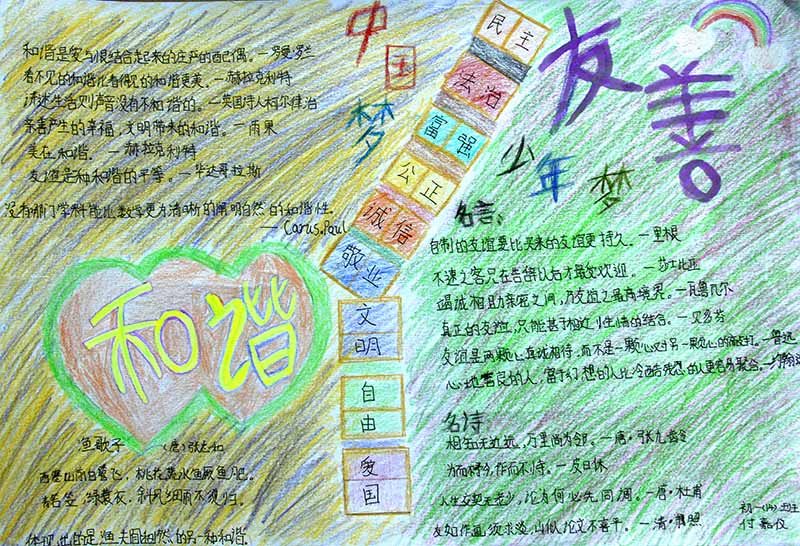 和谐是爱与恨结合起来的庄严的配偶。—罗曼·罗兰
看不见的和谐比看得见的和谐更美。—赫拉克利特
讲述生活的声音没有不和谐的。—英国诗人柯尔律治
亲善产生的幸福，文明带来的和谐。—雨果
美在和谐。 —赫拉克利特
友谊是种和谐的平等。—毕达哥拉斯
没有那门学科能比数学更为清晰的阐明自然的和谐性.
— Carus.Paul
和谐
渔歌子 (唐)张志和
西塞山前白鹭飞，桃花流水鳜鱼肥。
青箬笠，绿蓑衣，斜风细雨不须归。
体现出的是渔夫
自然的另一种和谐.
中国梦
民主
法治
富强
公正
诚信
敬业
文明
自由
爱国
友善
少年梦
名言：
自制的友谊要比买来的友谊更持久。—里根
不速之客只在告辞以后才最受欢迎。—莎士比亚
竭诚相助亲密之间，乃友谊之最高境界。—瓦鲁瓦尔
真正的友谊，只能基于相近性情的结合。—贝多芬
友谊是两颗心真诚相待，而不是一颗心对另一颗心的敲打。—鲁迅
心地善良的人，富于幻想的人比冷酷残忍的人更容易聚合。—约翰逊
名诗
相知无远近，万里尚为邻。—唐·张九龄
为而不矜，作而不恃。—皮日休
人生交契无老少，论
何必先同调。—唐·杜甫
友如作画须求淡，山似论文不喜平。—清·翁照
初一
付嘉仪